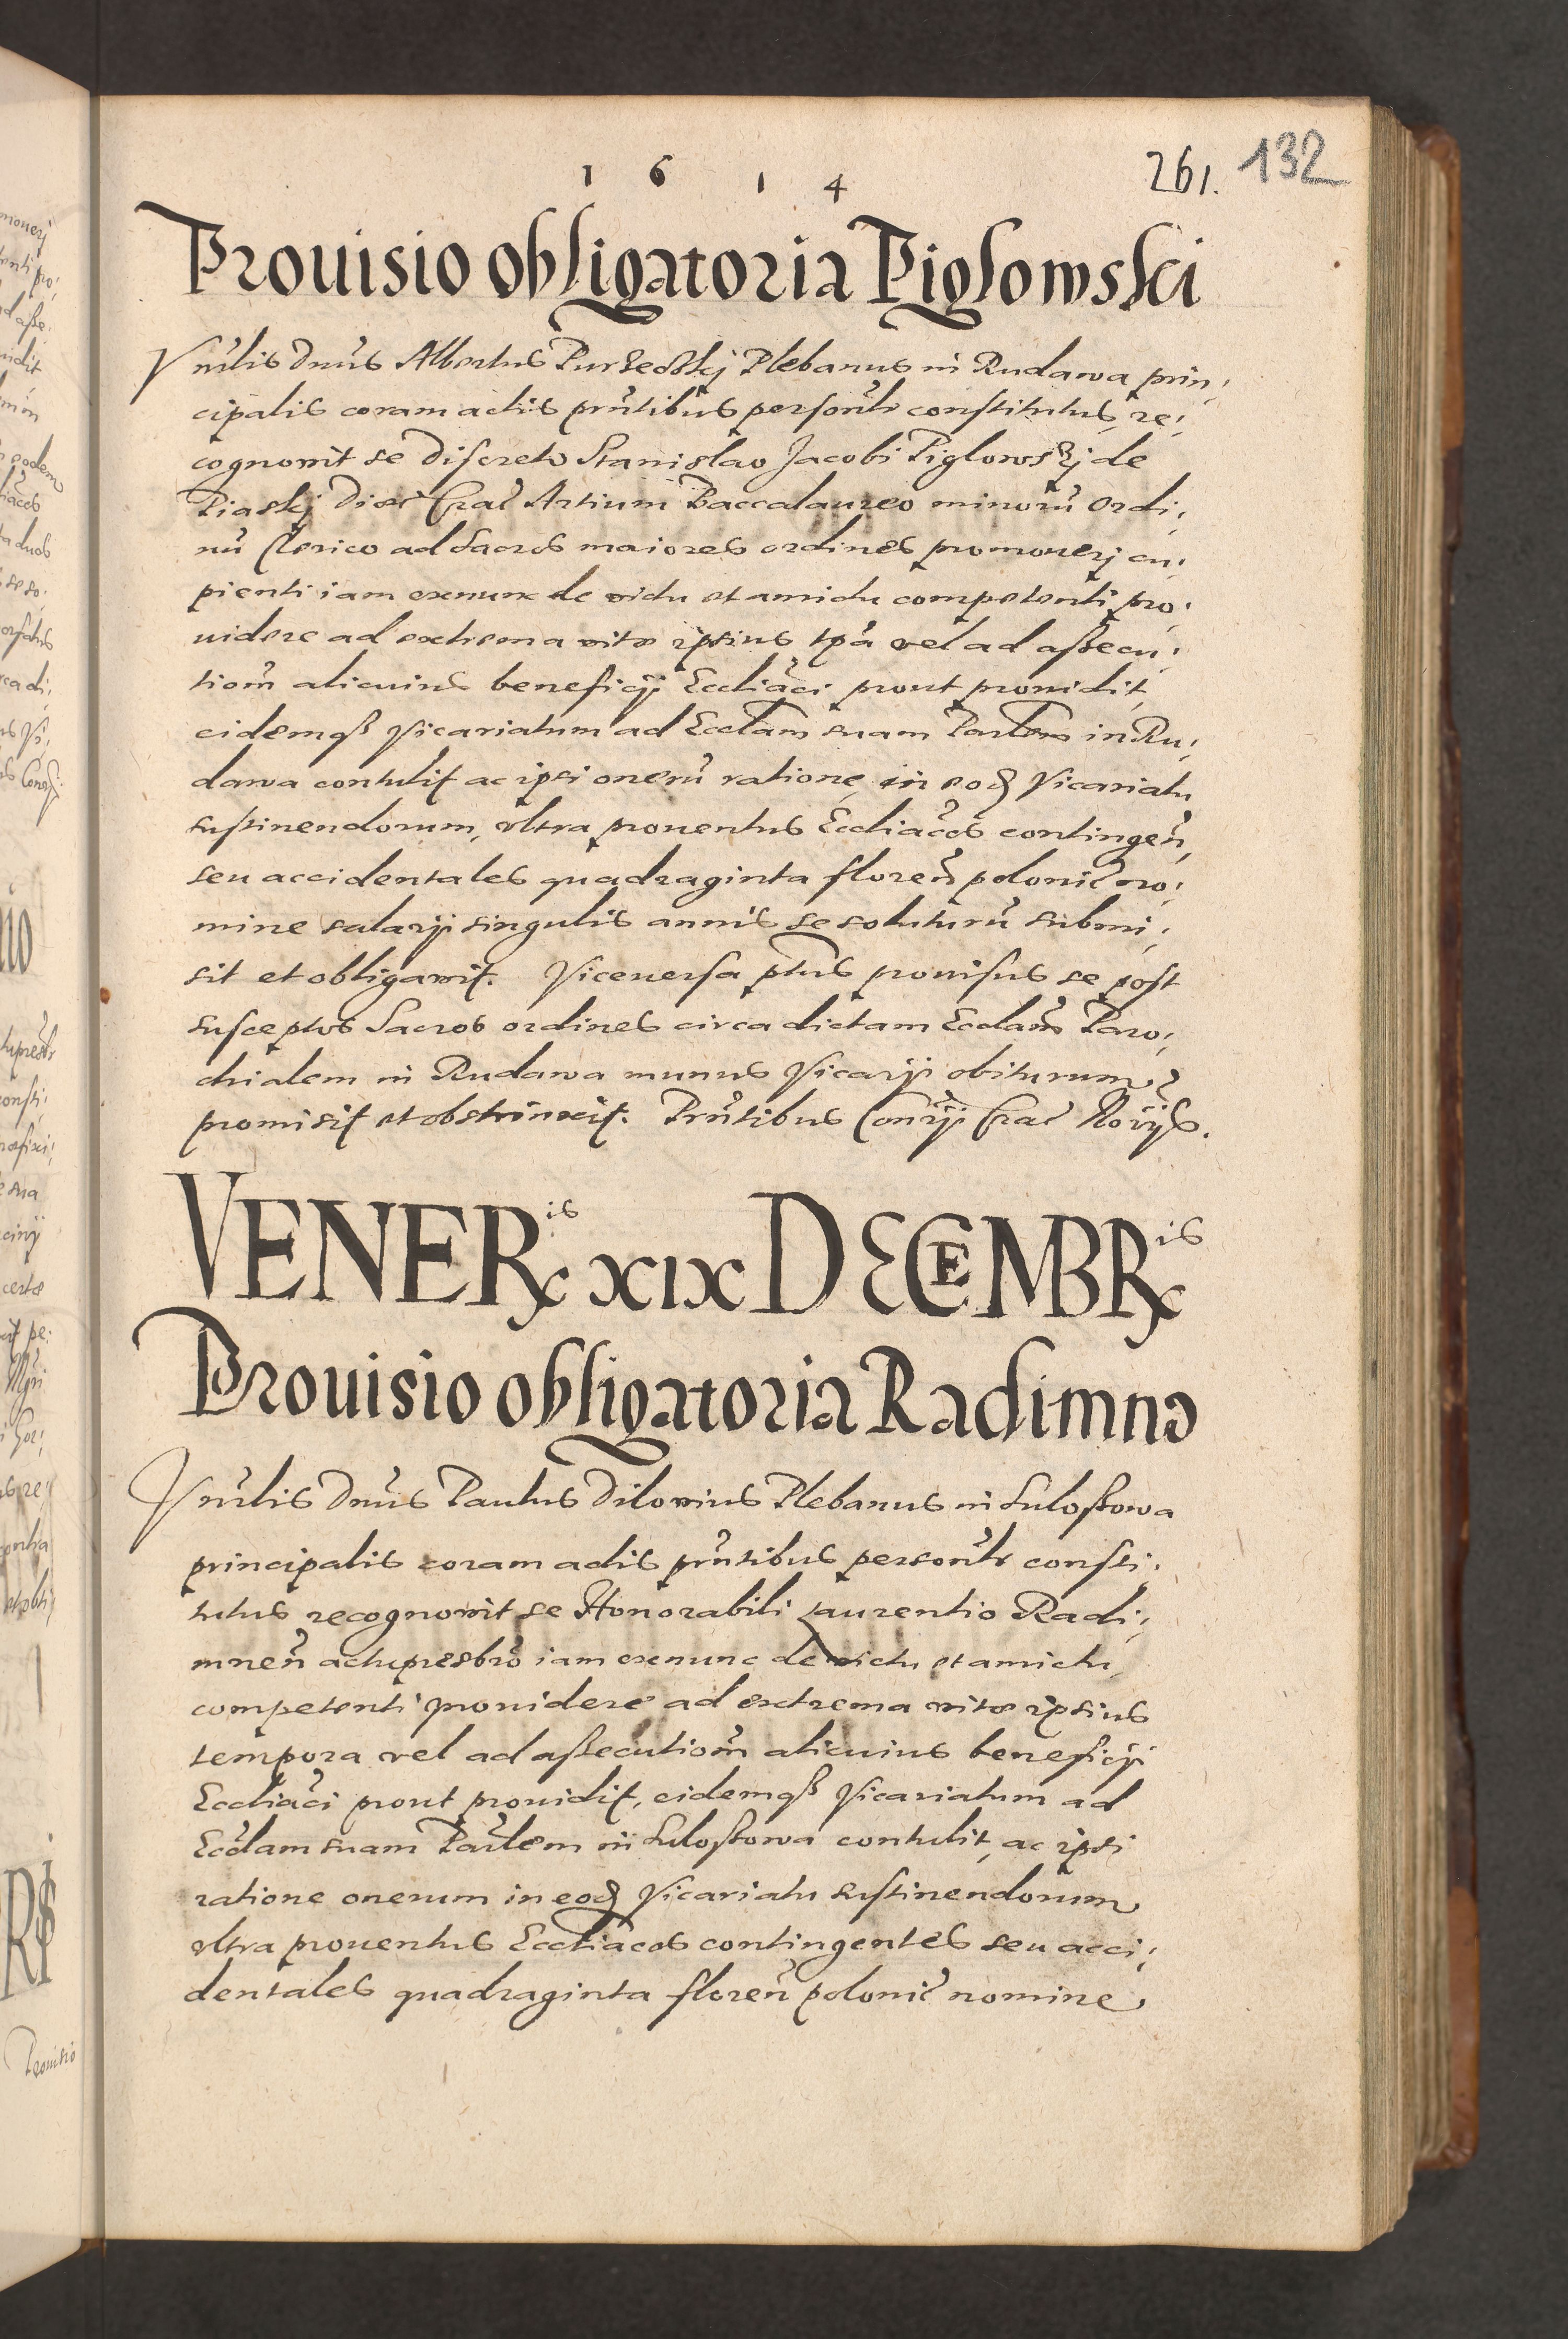 1 6 1 4
261. 132
Prouisio obligatoria Piglowski
Vnŭlis Dnŭs Albertus Plebanus in Rudawa prin,
cipalis coram actis prn̄tibus personlr̄ constitutus, re,
cognouit se Discreto Stanislao Jacobi Piglowskj de
Piaskj Dioc̄ Crac̄ Artium Baccalaureo minorū ordi,
nū Clerico ad sacros maiores ordines promouerj cu,
pienti iam exnunc de victu et amictu competenti pro,
uidere ad extrema vitæ ipsius tp̄a vel ad assecu,
tiom̄ alicuius beneficij Eccliāci prout prouidit,
eidemqß Vicariatum ad Ecclam suam in Ru,
dawa contulit ac ipsi onerū ratione in eod Vicariatu
sustinendorum, vltra prouentus Eccliācos contingen̄,
seu accidentales quadraginta floren̄ polonic̄ no,
mine salarij singulis annis se soluturū submi,
sit et obligauit. Viceuersa ptus prouisus se post
susceptos Sacros ordines circa dictam Ecclam̄ Paro,
chialem in Rudawa munus Vicarij obiturum
promisit et obstrinxit. Prn̄tibus Conrij Crac̄ Norijs.
VENERis XIX DECEMBRis
Prouisio obligatoria Radimno
Vnŭlis Dnŭs Paulus Dilouius Plebanus in Suloßowa
principalis coram actis prn̄tibus personlr̄ consti,
tutus recognouit se Honorabili Laurentio Radi,
mnen̄ actupresbrō iam exnunc de victu et amictu,
competenti prouidere ad extrema vitæ ipsius
tempora vel ad assecutiom̄ alicuius beneficij
Eccliāci prout prouidit, eidemqß Vicariatum ad
Ecclam suam Parlem in Suloßowa contulit, ac ipsi
ratione onerum in eod Vicariatu sustinendorum
vltra prouentus Eccliacos contingentes seu acci,
dentales quadraginta floren̄ polonic̄ nomine